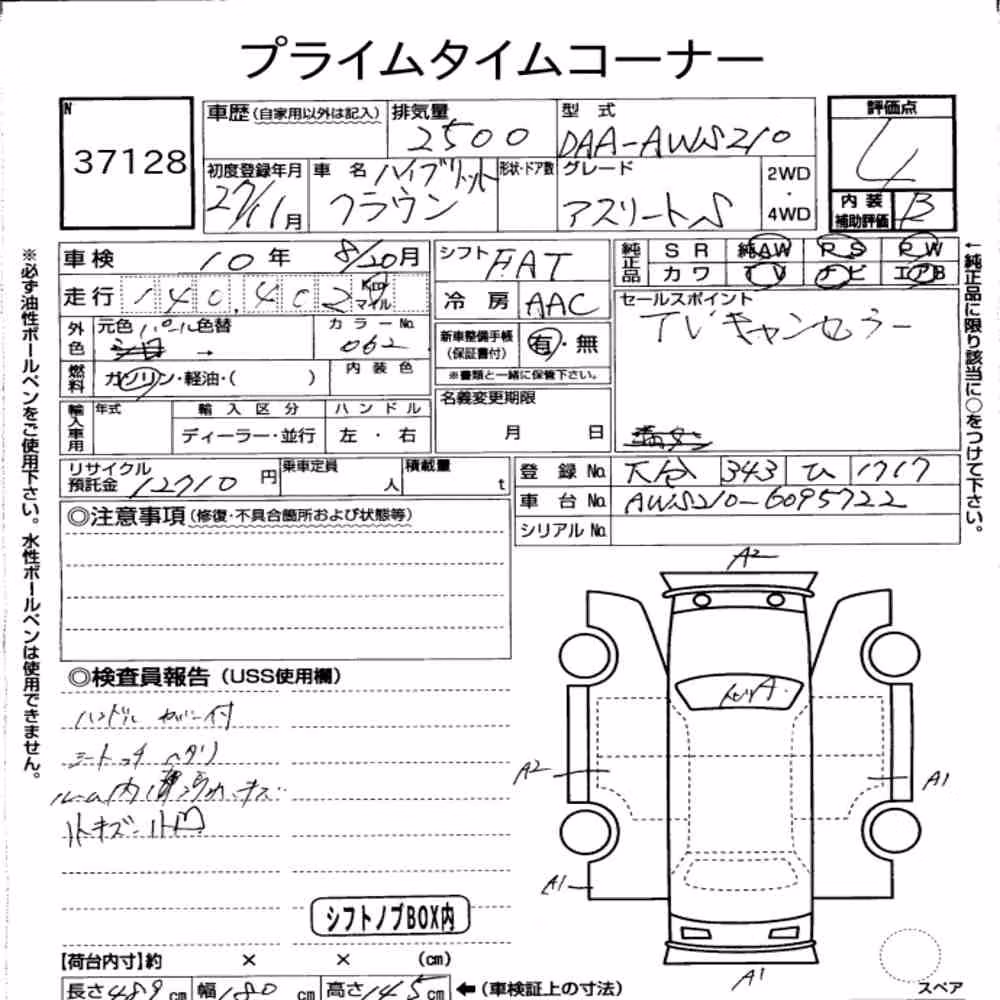 プライムタイムコーナー
N
37128
車歴(自家用以外は記入) 排気量 2500 型式 DAA-AWS210
評価点 4
初度登録年月 27/11月 車名 ハイブリット クラウン 形状・ドア数 グレード アスリートS 2WD・4WD
内装補助評価 B
車検 10年 8/20月
シフト FAT
純正品 SR 純AW PS PW
カワ TV ナビ エアB
走行 140,402 Km マイル
冷房 AAC
セールスポイント
TVキャンセラー
外色 元色 パール 色替 → カラーNo. 062
新車整備手帳(保証書付) 有・無
※書類と一緒に保管下さい。
燃料 ガソリン・軽油・( ) 内装色
名義変更期限 月 日
輸入車用 年式 輸入区分 ハンドル
ディーラー・並行 左・右
リサイクル預託金 12710円 乗車定員 人 積載量 t
登録No. 343 ひ 1717
車台No. AWS210-6095722
シリアルNo.
◎注意事項(修復・不具合箇所および状態等)
◎検査員報告(USS使用欄)
ハンドル カバー付
シート ヘタリ
ルーム内 キズ
シフトノブBOX内
A2
A
A2
A1
A1
A1
スペア
【荷台内寸】約 × × (cm)
長さ 489cm 幅 180cm 高さ 145cm ←(車検証上の寸法)
※必ず油性ボールペンをご使用下さい。水性ボールペンは使用できません。
←純正品に限り該当に○をつけて下さい。